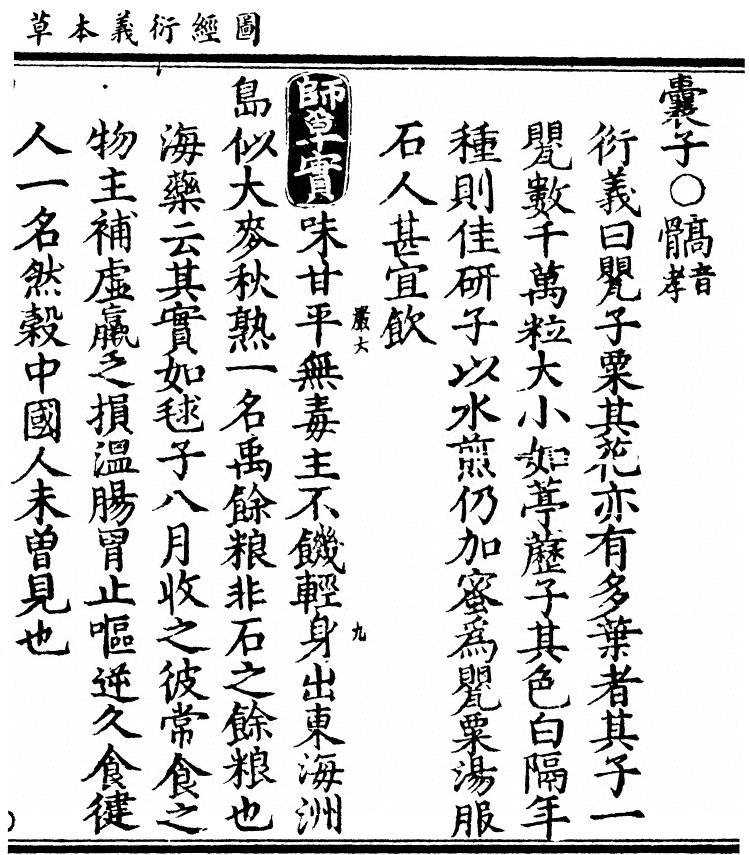 圖經衍義本草
囊子○䯨音孝
衍義曰甖子粟其花亦有多葉者其子一
甖數千萬粒大小如葶藶子其色白隔年
種則佳研子以水煎仍加蜜為甖粟湯服
石人甚宜飲
嚴大 九
師草實味甘平無毒主不饑輕身出東海洲
島似大麥秋熟一名禹餘粮非石之餘粮也
海藥云其實如毬子八月收之彼常食之
物主補虛羸乏損溫腸胃止嘔逆久食健
人一名然穀中國人未曾見也